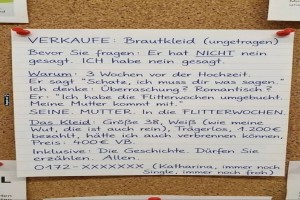 VERKAUFE: Brautkleid (ungetragen)
Bevor Sie fragen: Er hat NICHT nein
gesagt. ICH habe nein gesagt.
Warum: 3 Wochen vor der Hochzeit.
Er sagt "Schatz, ich muss dir was sagen."
Ich denke: Überraschung? Romantisch?
Er: "Ich habe die Flitterwochen umgebucht.
Meine Mutter kommt mit."
SEINE. MUTTER. In die FLITTERWOCHEN.
Das Kleid: Größe 38, Weiß (wie meine
Wut, die ist auch rein), Trägerlos, 1.200€
bezahlt, hätte ich auch verbrennen können.
Preis: 400€ VB.
Inklusive: Die Geschichte. Dürfen Sie
erzählen. Allen.
0172-XXXXXXX (Katharina, immer noch
Single, immer noch froh)